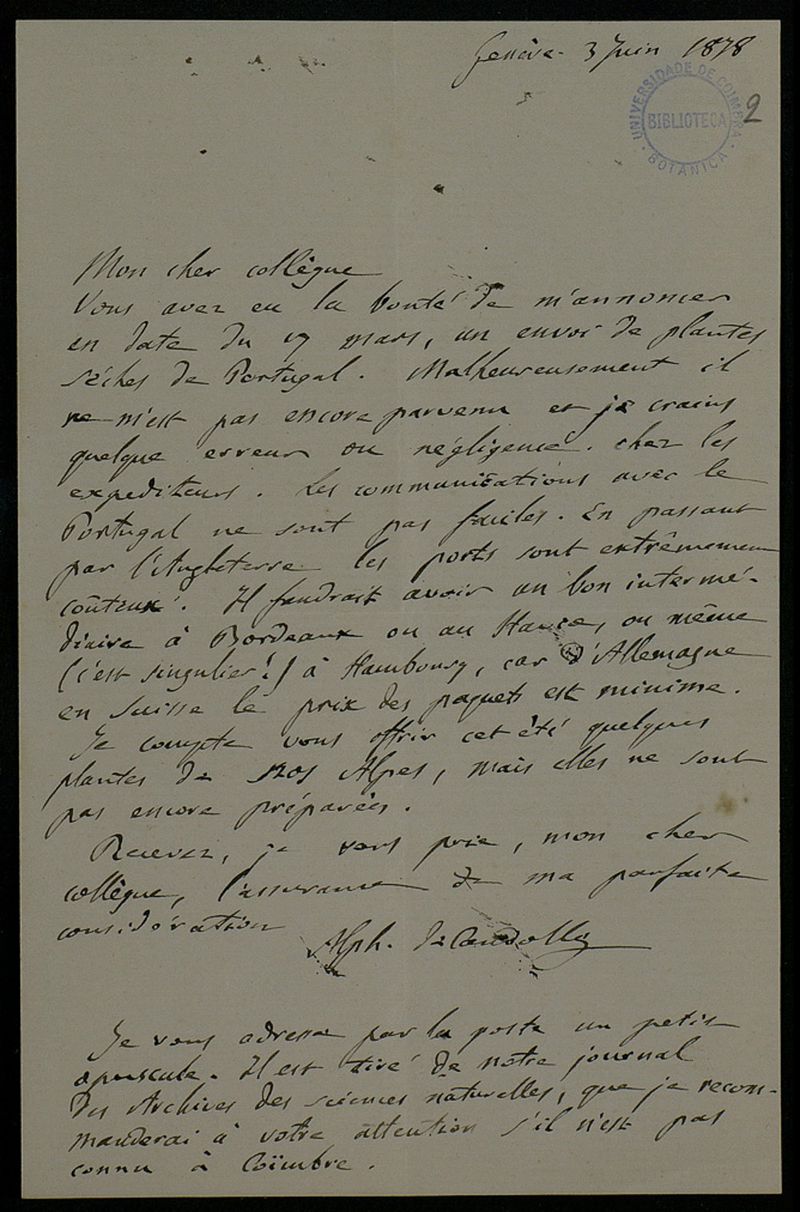 Genève 3 Juin 1878
UNIVERSIDADE DE COIMBRA
BIBLIOTECA
BOTANICA
2
Mon cher collègue
Vous avez eu la bonté de m'annoncer
en date du 17 mars, un envoi de plantes
sèches de Portugal. Malheureusement il
ne m'est pas encore parvenu et je crains
quelque erreur ou négligence chez les
expediteurs. Les communications avec le
Portugal ne sont pas faciles. En passant
par l'Angleterre les ports sont extrêmement
coûteux. Il faudrait avoir un bon intermé-
diaire à Bordeaux ou au Havre, ou même
(c'est singulier!) à Hambourg, car d'Allemagne
en Suisse le prix des paquets est minime.
Je compte vous offrir cet été quelques
plantes de nos Alpes, mais elles ne sont
pas encore préparées.
Recevez, je vous prie, mon cher
collègue, l'assurance de ma parfaite
considération
Alph. de Candolle
Je vous adresse par la poste un petit
opuscule. Il est tiré de notre journal
des Archives des sciences naturelles, que je recom-
manderai à votre attention s'il n'est pas
connu à Coïmbre.